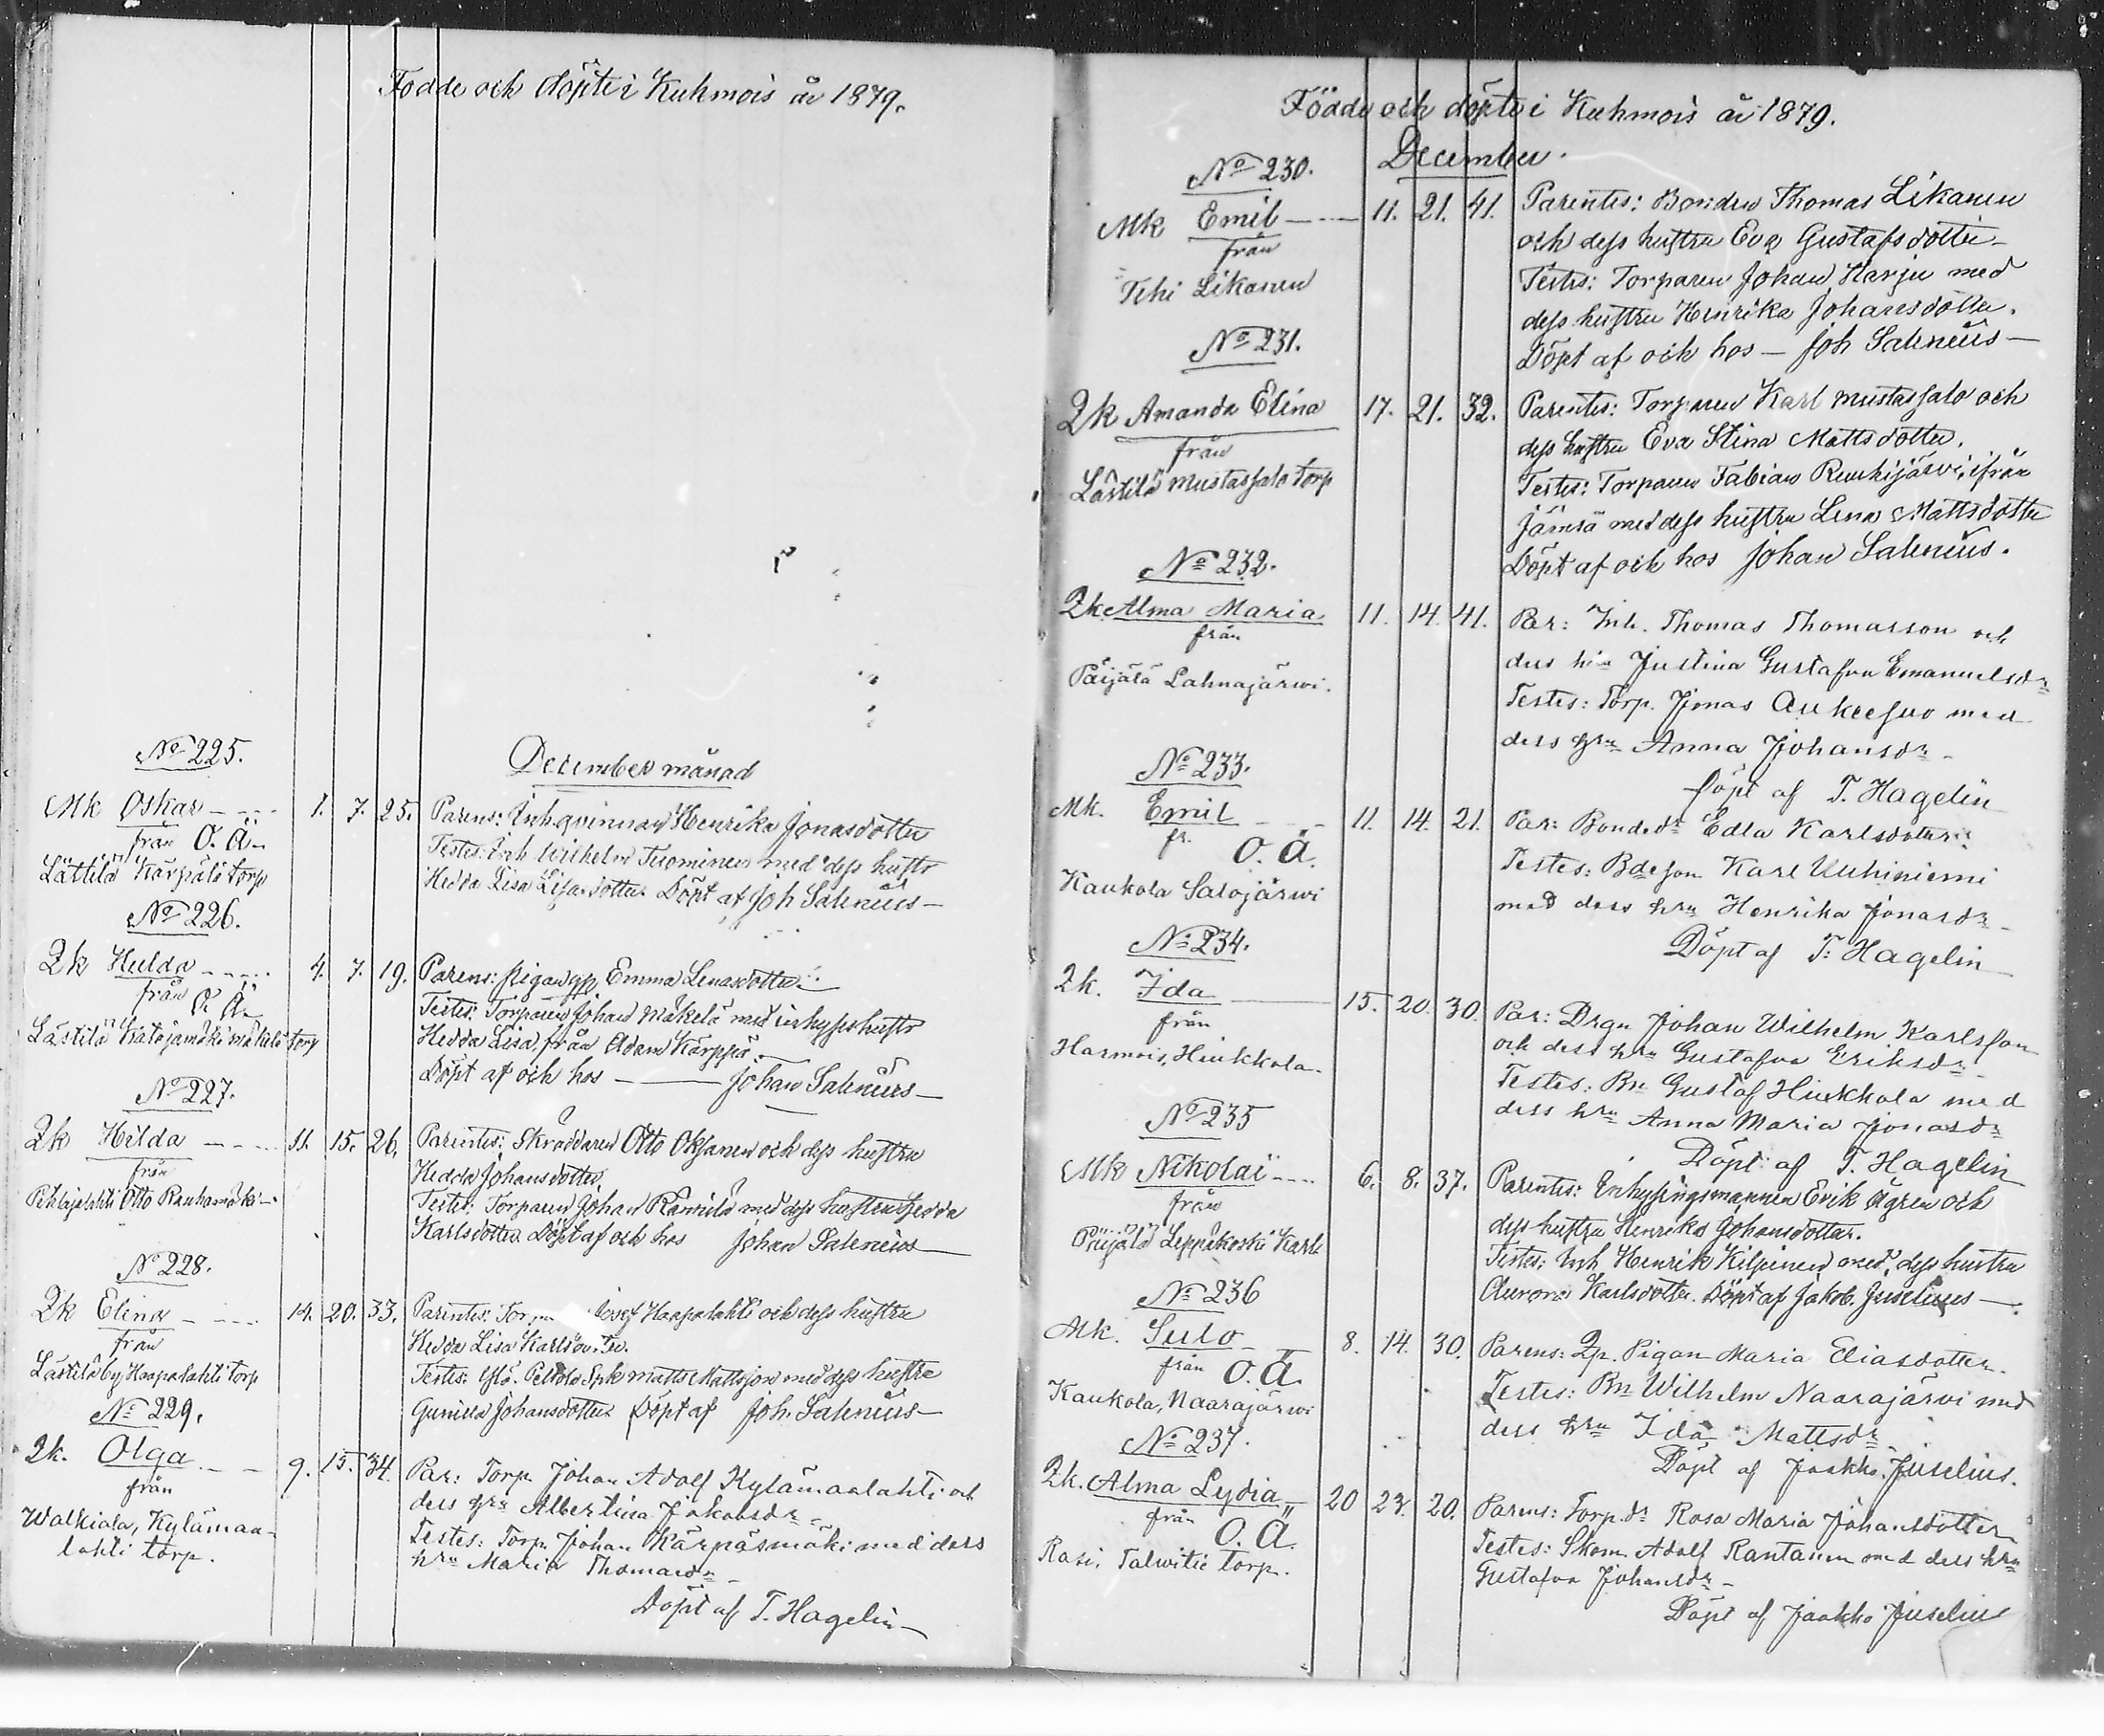 Födde och döpte i Kuhmois år 1879.
December månad
No 225.
Mk Oskar 1. 7. 25.
från O. Ä.
Lästilä Kärpälä torp
Parens: Inh. qvinnan Henrika Jonasdotter
Testes: Inh Wilhelm Tuominen med dess hustr
Hedda Lisa Lisasdotter Döpt af Joh Salenius
No 226.
Qk Hulda 4. 7. 19.
från O. Ä.
Lästilä Katajamäki Mäkelä torp
Parens: Pigan Emma Lenasdotter
Testes: Torparen Johan Mäkelä med inhyses hustr
Hedda Lisa från Adam Kärppä.
Döpt af och hos — Johan Salenius
No 227.
Qk Hilda 11. 15. 26.
från
Pihlajalahti Otto Rauhamäki
Parentes: Skräddaren Otto Oksanen och dess hustru
Hedda Johansdotter,
Testes: Torparen Johan med dess hustru Hedda
Karlsdotter Döpt af och hos Johan Salenius
No 228.
Qk Elina 14. 20. 33.
från
Lästilä by Haapalahti torp
Parentes: Tor Josef Haapalahti och dess hustru
Hedda Lisa Karlsdotter.
Testes: Peltola Matts Mattsson med dess hustru
Gunilla Johansdotter Döpt af Joh. Salenius
No 229.
Qk. Olga 9. 15. 34.
från
Walkiala, Kylämaa-
lahti torp.
Par: Torp. Johan Adolf Kylämaalahti och
dess hru Albertina Jakobsdr
Testes: Torp. Johan Kärpäsmäki med dess
hru Maria Thomasdr
Döpt af T. Hagelin
Födde och döpte i Kuhmois år 1879.
December.
No 230.
Mk Emil 11. 21. 41.
från
Tehi Likanen
Parentes: Bonden Thomas Likanen
och dess hustru Eva Gustafsdotter
Testes: Torparen Johan Harju med
dess hustru Henrika Johansdotter.
Döpt af och hos — Joh Salenius —
No 231.
Qk Amanda Elina 17. 21. 32.
från
Lästilä Mustassalo torp
Parentes: Torparen Karl Mustassalo och
dess hustru Eva Stina Mattsdotter.
Testes: Torparen Fabian Ruuhijärvi, ifrån
Jämsä med dess hustru Lena Mattsdotter
Döpt af och hos Johan Salenius.
No 232.
Qk Alma Maria 11. 14. 41.
från
Päijälä Lahnajärwi.
Par: Inh. Thomas Thomasson och
dess hru Justina Gustafva Emanuelsdr
Testes: Torp. Jonas Aukeesuo med
dess hru Anna Johansdr
Döpt af T. Hagelin
No 233.
Mk. Emil 11. 14. 21.
fr. O. Ä.
Kaukola Salojärwi
Par: Bondedr Edla Karlsdotter
Testes: Bdeson Karl Uuhiniemi
med dess hru Henrika Jonasdr
Döpt af T. Hagelin
No 234.
Qk. Ida 15. 20. 30.
från
Harmois, Hiukkola
Par: Drgn Johan Wilhelm Karlsson
och dess hru Gustafva Eriksdr
Testes: Bn Gustaf Hiukkola med
dess hru Anna Maria Jonasdr
Döpt af T. Hagelin
No 235
Mk Nikolai 6. 8. 37.
från
Päijälä Leppäkoski Karl
Parentes: Inhysingsmannen Erik Ågren och
dess hustru Henrika Johansdotter.
Testes: Inh Henrik Kilpinen med dess hustru
Aurora Karlsdotter. Döpt af Jakob. Juselius —
No 236
Mk. Sulo 8. 14. 30.
från O. Ä.
Kaukola, Naarajärwi
Parens: Qp. Pigan Maria Eliasdotter.
Testes: Bn Wilhelm Naarajärvi med
dess hru Ida Mattsdr
Döpt af Jaakko. Juselius.
No 237.
Qk. Alma Lydia 20 23. 20.
från O. Ä.
Rasi, Talwitie torp.
Parens: Torp.dr Rosa Maria Johansdotter
Testes: Skom. Adolf Rantanen med dess hru
Gustafva Johansdr
Döpt af Jaakko Juselius